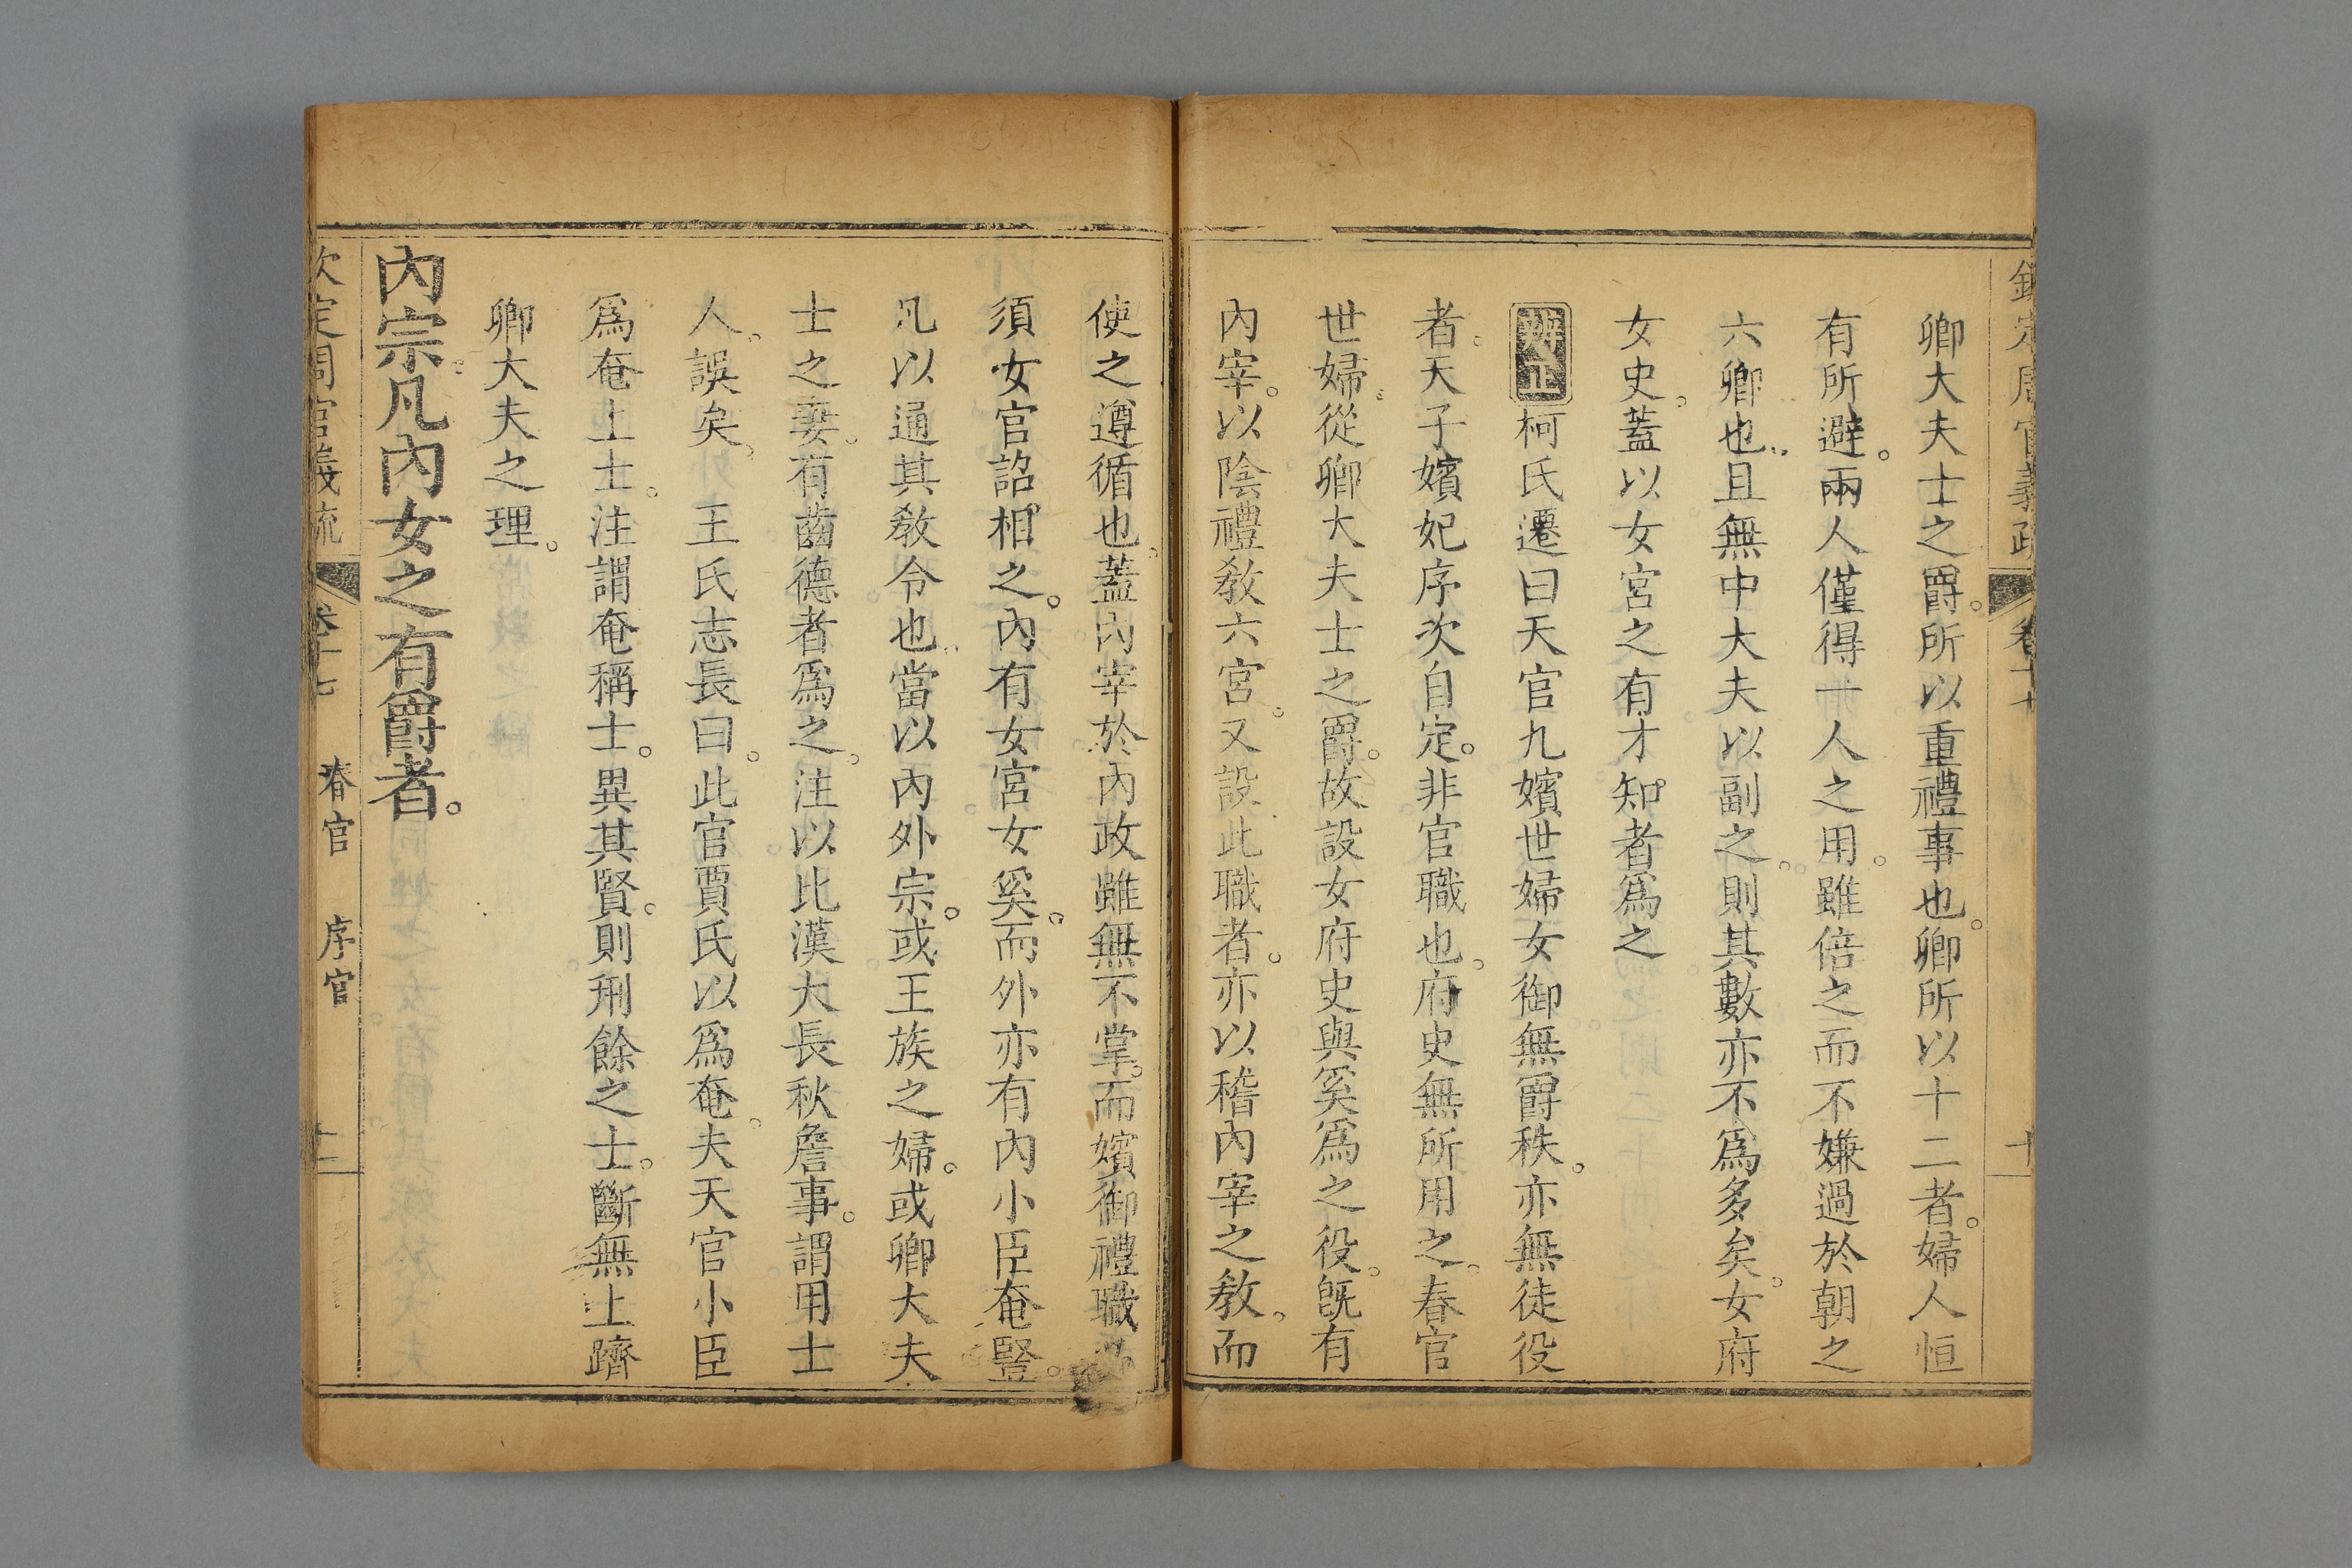 欽定周官義疏 卷十七 十
卿大夫士之爵。所以重禮事也。卿所以十二者。婦人恒
有所避。兩人僅得一人之用。雖倍之而不嫌過於朝之
六卿也。且無中大夫以副之。則其數亦不爲多矣。女府
女史。蓋以女宮之有才知者爲之
辨正柯氏遷曰天官九嬪世婦女御無爵秩。亦無徒役
者。天子嬪妃序次自定。非官職也。府史無所用之。春官
世婦。從卿大夫士之爵。故設女府史與奚爲之役。旣有
內宰。以陰禮敎六宮。又設此職者。亦以稽內宰之敎。而
使之遵循也。蓋內宰於內政雖無不掌。而嬪御禮職
須女官詔相之。內有女宮女奚。而外亦有內小臣奄豎。
凡以通其敎令也。當以內外宗。或王族之婦。或卿大夫
士之妻。有齒德者爲之。注以比漢大長秋詹事。謂用士
人。誤矣。 王氏志長曰。此官賈氏以爲奄。夫天官小臣
爲奄上士。注謂奄稱士。異其賢。則刑餘之士。斷無上躋
卿大夫之理。
內宗。凡內女之有爵者。
欽定周官義疏 卷十七 春官 序官 十一